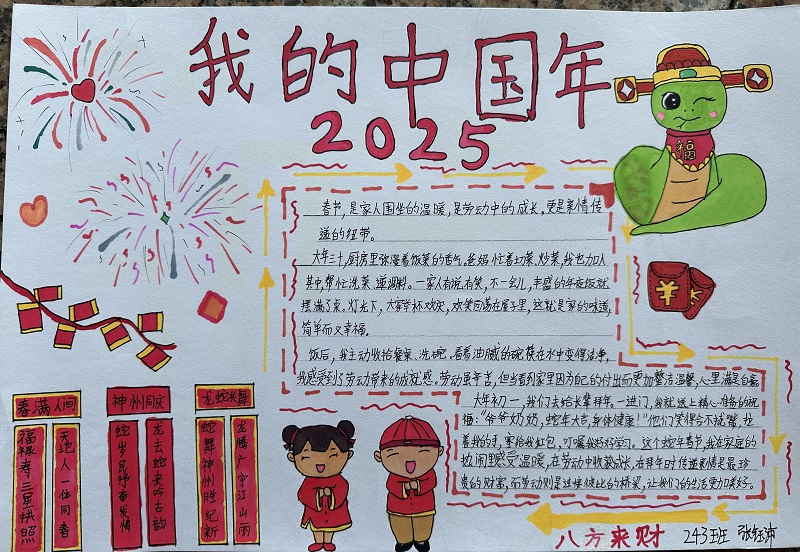 我的中国年
2025
福
春节,是家人围坐的温暖,是劳动中的成长,更是亲情传
递的纽带。
大年三十,厨房里弥漫着饭菜的香气。爸妈忙着切菜、炒菜,我也加入
其中,帮忙洗菜、递调料。一家人有说有笑,不一会儿,丰盛的年夜饭就
摆满了桌。灯光下,大家举杯欢庆,欢笑回荡在屋子里,这就是家的味道,
简单而又幸福。
饭后,我主动收拾餐桌、洗碗。看着油腻的碗筷在水中变得洁净,
我感受到了劳动带来的成就感。劳动虽辛苦,但当看到家里因为自己的付出而更加整洁温馨,心里满是自豪
大年初一,我们去给长辈拜年。一进门,我就送上精心准备的祝
福:“爷爷奶奶,蛇年大吉,身体健康!”他们笑得合不拢嘴,拉
着我的手,塞给我红包,叮嘱我好好学习。这个蛇年春节,我在家庭的
热闹里感受温暖,在劳动中收获成长,在拜年时传递亲情是最珍
贵的财富,而劳动则是连接彼此的桥梁,让我们的生活更加美好。
春满人间
福禄寿三星拱照
天地人一体同春
神州同庆
蛇岁民抒奋发情
龙去蛇来吟古韵
龙蛇共舞
蛇舞神州胜纪新
龙腾广宇江山丽
八方来财
243班 张钰沛